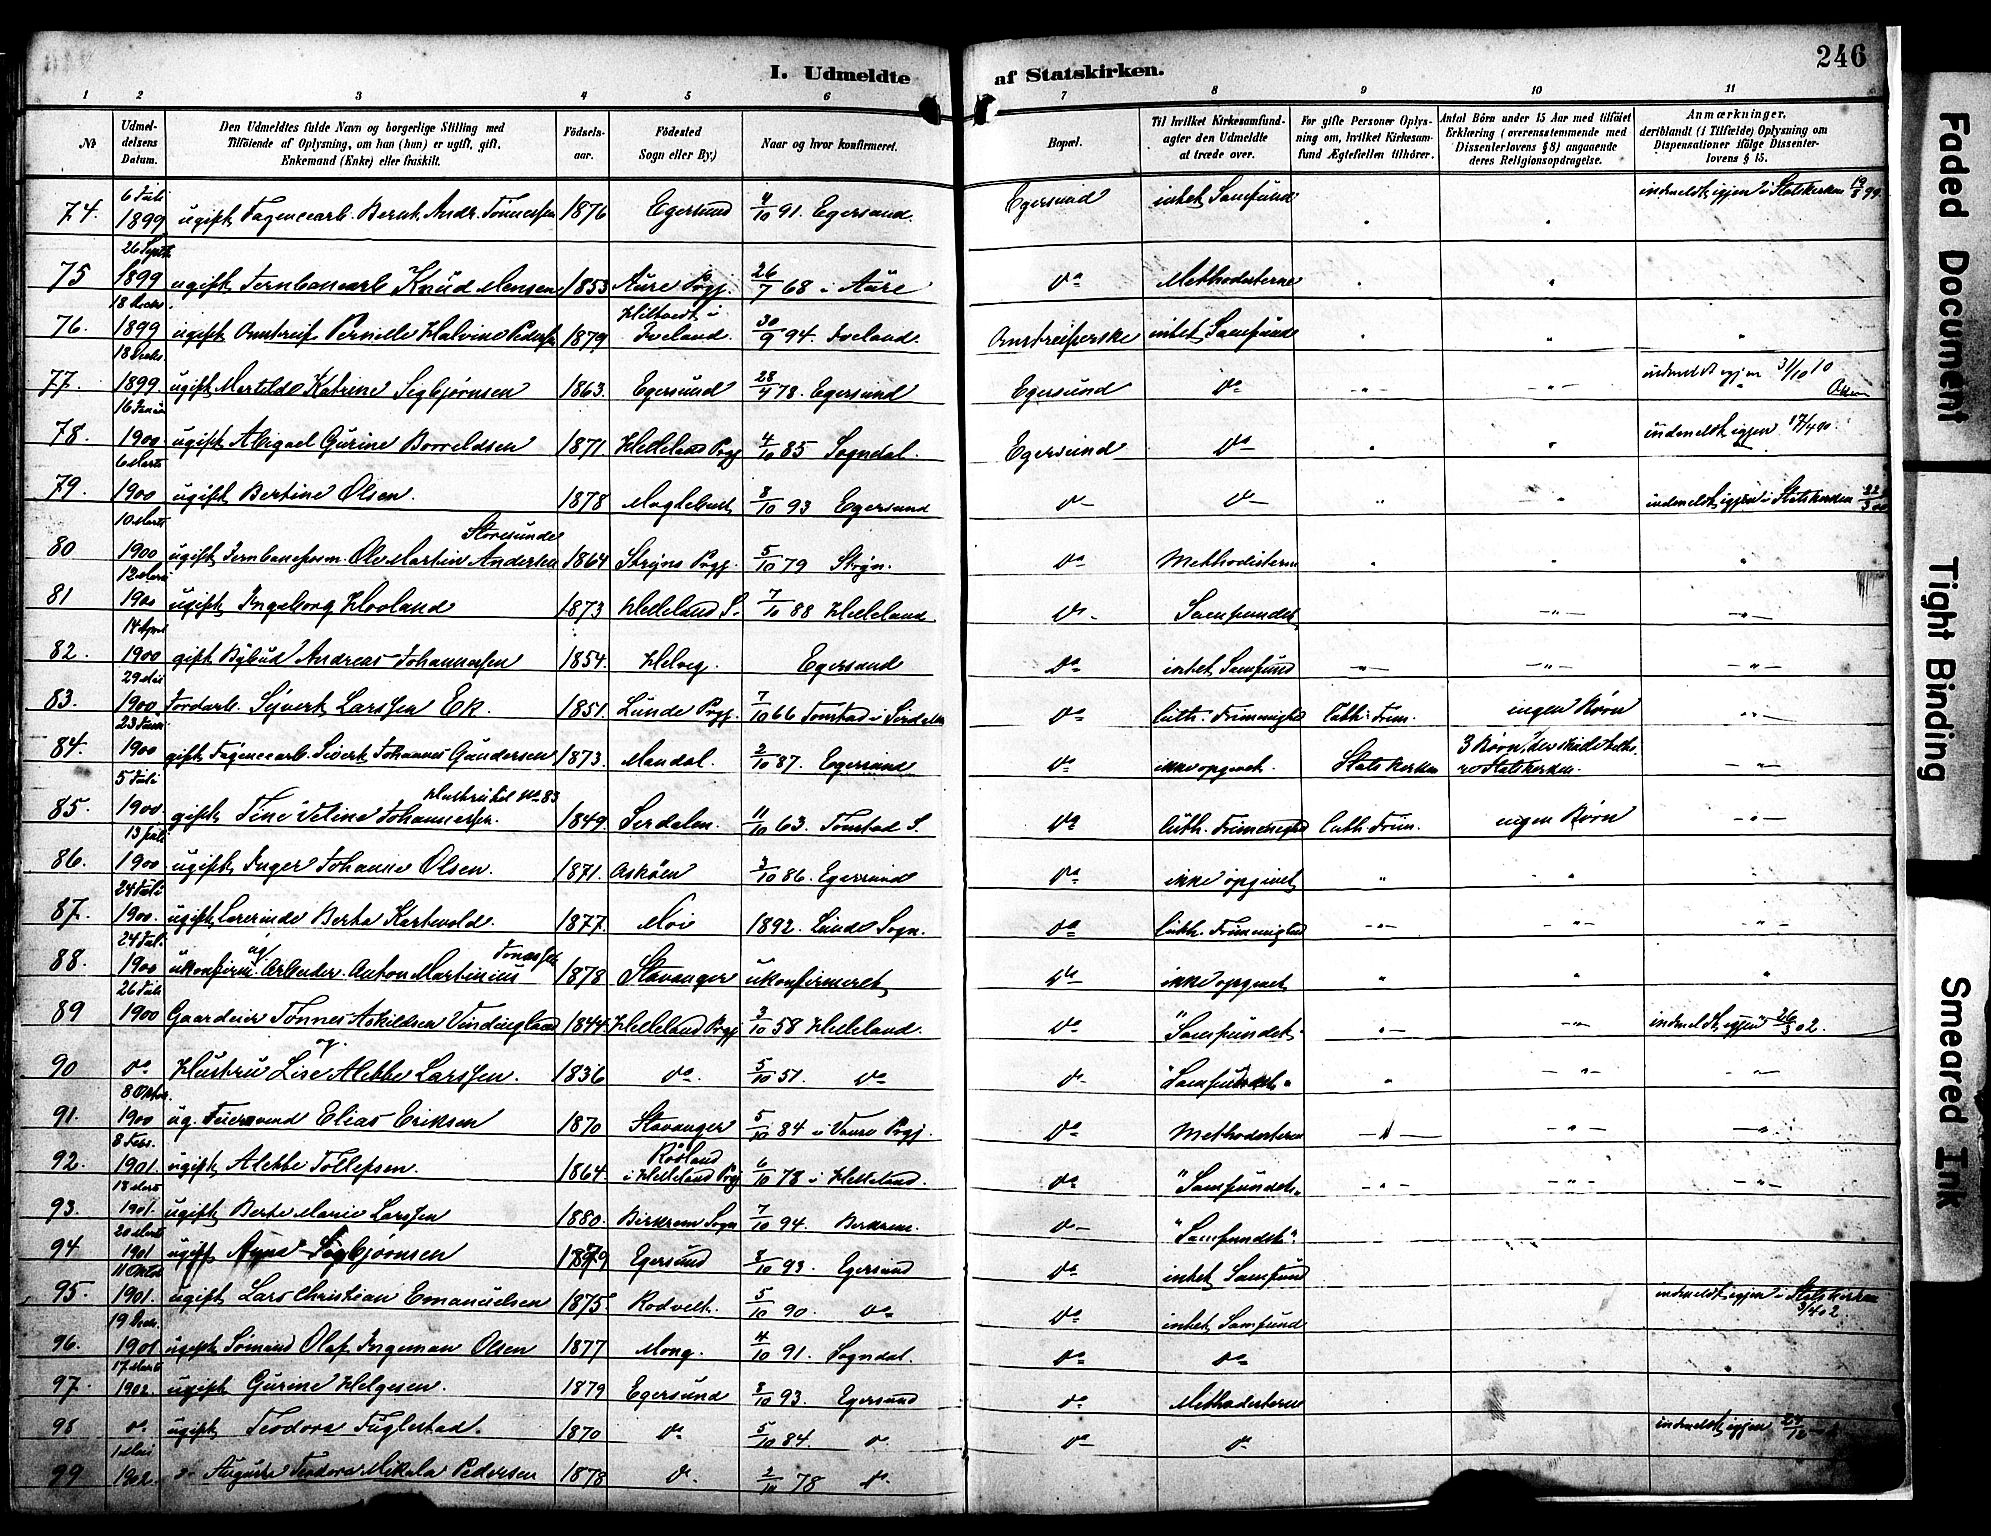 246
I. Udmeldte af Statskirken.
1 2 3 4 5 6 7 8 9 10 11
№ | Udmel-delsens Datum. | Den Udmeldtes fulde Navn og borgerlige Stilling med Tilføiende af Oplysning, om han (hun) er ugift, gift, Enkemand (Enke) eller fraskilt. | Fødsels-aar. | Fødested Sogn eller By.) | Naar og hvor konfirmeret. | Bopæl. | Til hvilket Kirkesamfund agter den Udmeldte at træde over. | For gifte Personer Oplysning om, hvilket Kirkesamfund Ægtefællen tilhører. | Antal Børn under 15 Aar med tilføiet Erklæring (overensstemmende med Dissenterlovens § 8) angaaende deres Religionsopdragelse. | Anmærkninger, deriblandt (i Tilfælde) Oplysning om Dispensationer ifølge Dissenterlovens § 15.
74. 6 Juli 1899 ugift Fagencearb. Bernt Andr. Tønnessen 1876 Egersund 4/10 91. Egersund. Egersund intet Samfund " " indmeldt igjen i Statskirken 19/8 99.
75 26 Septb. 1899 ugift Jernbanearb. Knud Monsen 1853 Aure Pgj. 26/7 68 i Aure Do Methodisterne " "
76. 18 Decbr. 1899 ugift Omstreif. Pernille Halvine Pedersen 1879 Hiltvedt i Iveland. 30/9 94. Iveland. Omstreiferske intet Samfund " " "
77. 18 Decbr. 1899. ugift Martilde Katrine Sigbjørnsen 1863. Egersund 28/4 78. Egersund Egersund Do " " indmeldt igjen 31/10 10
78. 16 Januar 1900 ugift Abigael Gurine Borreldsen 1871. Helleland Pgj 4/10 85 Sogndal. Egersund Do " " indmeldt igjen 17/4 00.
79. 6 Marts 1900 ugift Bertine Olsen. 1878 8/10 93 Egersund Do Do " " indmeldt igjen i Statskirken 22/3 00
80 10 Marts 1900 ugift Jernbaneform. Ole Martin Andersen Storesunde 1864 Stryns Pgj. 5/10 79 Stryn. Do Methodisterne " " "
81 12 Marts 1900 ugift Ingeborg Hovland 1873 Helleland S. 7/10 88 Helleland. Do Samfundet " "
82. 14 April 1900 gift Bybud Andreas Johannessen 1854. Helvig. Egersund Do intet Samfund " " "
83. 29 Mai 1900 Jordarb. Syvert Larssen Ek. 1851. Lunde Pgj. 7/10 66 Tonstad i Sirdalen Do luth. Frimenighed luth. Frim. ingen Børn "
84. 23 Juni 1900 gift Fagencearb. Sivert Johannes Gundersen 1873. Mandal. 2/10 87. Egersund Do ikke opgivet. Statskirken 3 Børn, der skulle tilhøre Statskirken. "
85. 5 Juli 1900. gift Tine Veline Johannessen. Hustru til No 83 1849. Sirdalen. 11/10 63. Tonstad S. Do luth. Frimenighed luth. Frim. ingen Børn "
86. 13 Juli 1900 ugift Inger Johanne Olsen. 1871. Askøen 3/10 86. Egersund Do ikke opgivet " "
87. 24 Juli 1900. ugift Lærerinde Berta Kartevold. 1877. Moi 1892. Lunde Sogn. Do luth. Frimenighed " " "
88. 24 Juli 1900 ukonfirm. ug. Arbeider. Anton Martinius Jonassen 1878 Stavanger ukonfirmeret Do ikke opgivet " " "
89 26 Juli 1900 Gaardeier Tønnes Askildsen Vindingland 1844. Helleland Pgj 3/10 58 Helleland. Do "Samfundet" " " indmeldt igjen 26/3 02.
90 Do Hustru Lise Alette Larssen. 1836 Do. 5/10 51. Do Do "Samfundet" " " "
91. 8 Oktbr. 1900 ug. Feiersvend Elias Eriksen 1870 Stavanger 5/10 84 i Vanse Pgj. Do Methodisterne " " "
92. 8 Febr. 1901. ugift Alette Tollefsen. 1864. Røsland i Helleland Pgj 6/10 78 i Helleland. Do "Samfundet" " " "
93. 18 Marts 1901. ugift Berte Marie Larssen 1880. Birkrem Sogn 7/10 94. Birkrem. Do "Samfundet".
94 20 Marts 1901 ugift Sigbjørnsen 1879 Egersund 8/10 93. Egersund Do intet Samfund
95. 11 Oktbr 1901. ugift Lars Christian Emanuelsen 1875 Rodvelt. 5/10 90. Do Do intet Samfund indmeldt igjen i Statskirken 3/4 02.
96. 19 Decbr. 1901 ugift Sømand Olaf Ingeman Olsen 1877 Mong. 4/10 91. Sogndal. Do Do
97. 17 Marts 1902. ugift Gurine Helgesen. 1879 Egersund 8/10 93. Egersund Do Methodisterne
98 Do ugift Teodora Fuglestad. 1870 Do 5/10 84. Do Do Do indmeldt igjen
99 1 Mai 1902. Do Auguste Teodora Mikala Pedersen 1878 Do. 2/10 78 Do.
Faded Document
Tight Binding
Smeared Ink